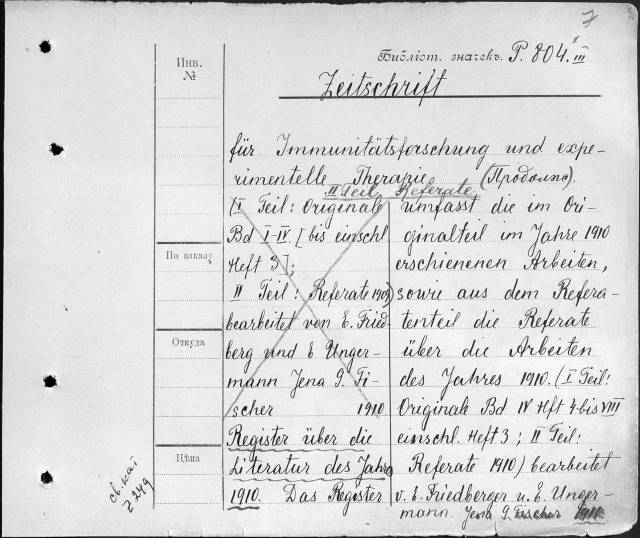 7
Библіот. значекъ. P. 804. III
Инв.
№
Zeitschrift
für Immunitätsforschung und expe-
rimentelle Therapie (Продолж).
II Teil Referate
(I Teil: Originale
Bd I-IV. [bis einschl
Heft 3];
II Teil: Referate 1909)
bearbeitet von E. Fried-
berg und E Unger-
mann Jena G. Fi-
scher 1910.
Register über die
Literatur des Jahr
1910. Das Register
umfasst die im Ori-
ginalteil im Jahre 1910
erschienenen Arbeiten,
sowie aus dem Refera-
tenteil die Referate
über die Arbeiten
des Jahres 1910. (I Teil:
Originale Bd IV Hft 4-bis VIII
einschl. Heft 3; II Teil:
Referate 1910) bearbeitet
v. E. Friedberger u. E. Unger-
mann. Jena G. Fischer 1911
По заказу
Откуда
Цѣна
св. кат
Z 249